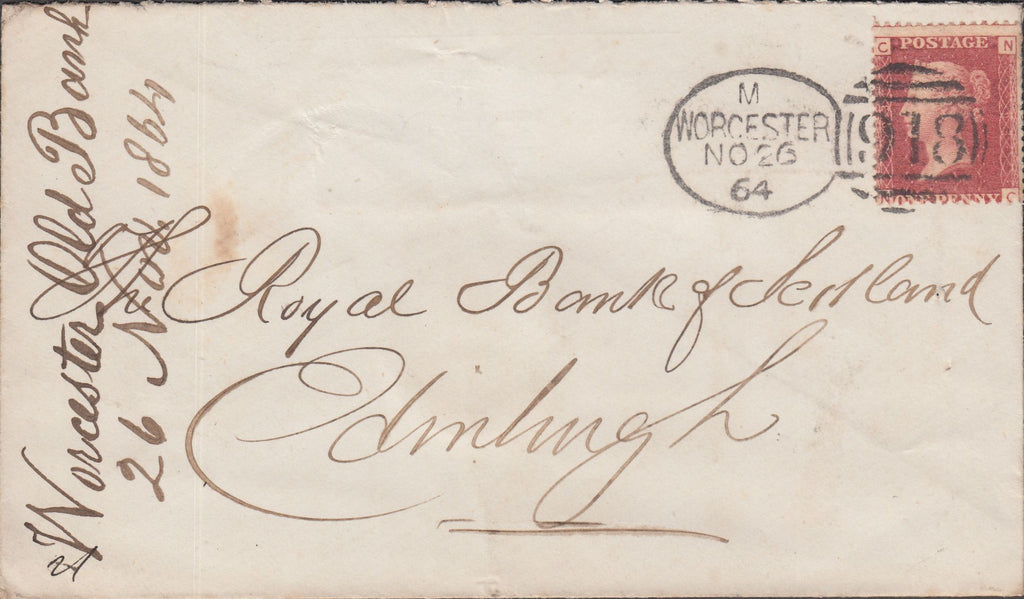 Worcester Old Bank
26 Nov. 1864
C POSTAGE N
M
WORCESTER
NO 26
64
918
ONE PENNY C
The Royal Bank of Scotland
Edinburgh